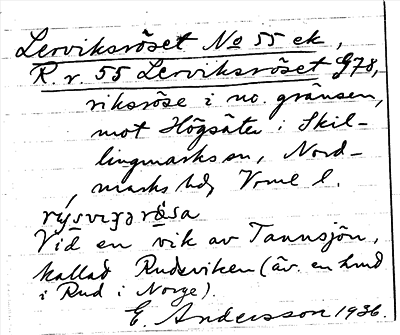 Lerviksröset No 55 ek,
R. r. 55 Lerviksröset G78,
riksröse i no. gränsen,
mot Högsäter i Skil-
lingmarks sn, Nord-
marks hd, Vrml l.
Vid en vik av Tannsjön,
kallad Rudsviken (äv. en
i Rud i Norge).
E. Andersson 1936.